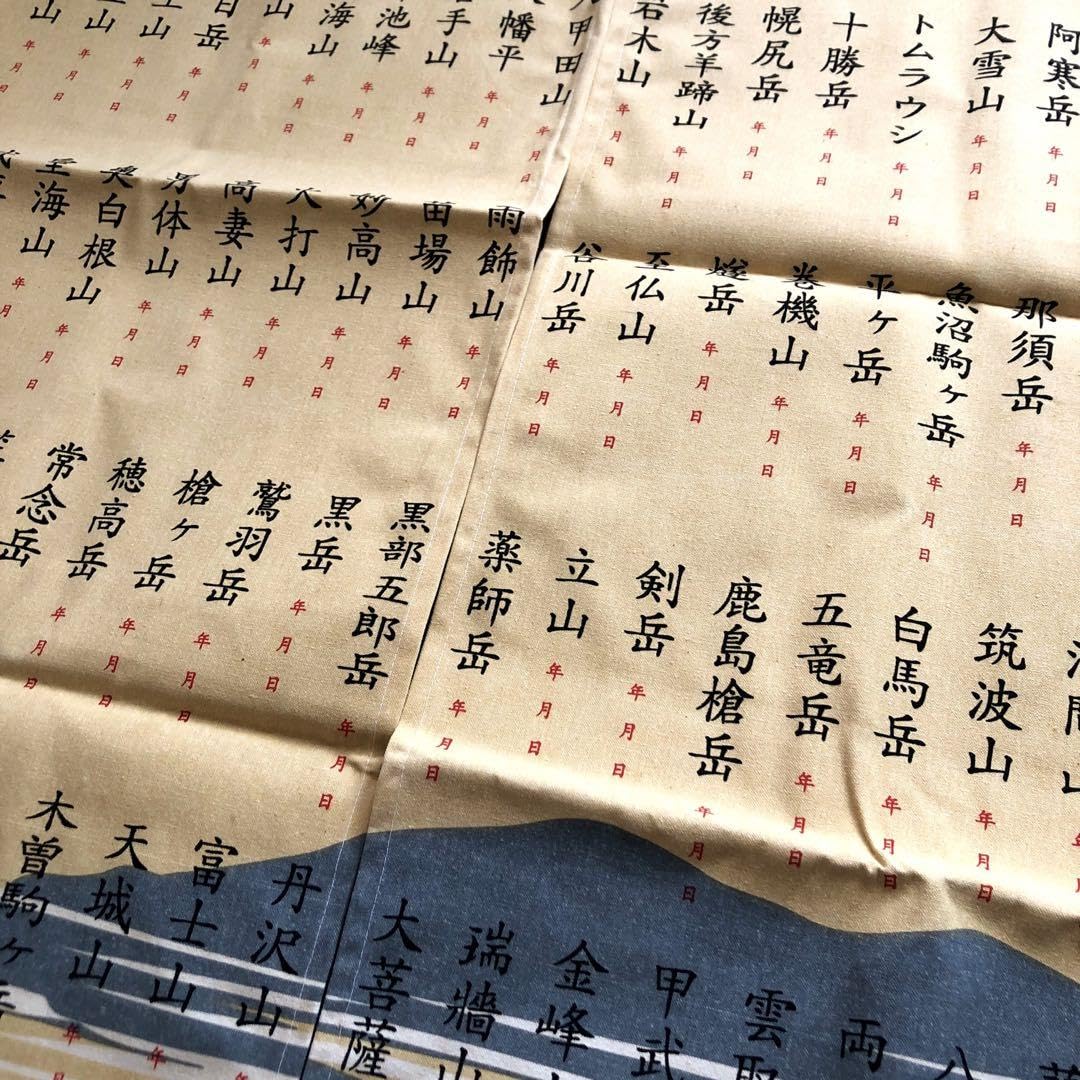 阿寒岳 年月日
大雪山 年月日
トムラウシ 年月日
十勝岳 年月日
幌尻岳 年月日
後方羊蹄山 年月日
石木山 年月日
甲田山 年月日
幡平 年月日
手山 年月日
池峰 年月日
海山 年月日
山 年月日
岳 年月日
山 年月日
山 年月日
那須岳 年月日
魚沼駒ヶ岳 年月日
平ヶ岳 年月日
巻機山 年月日
燧岳 年月日
至仏山 年月日
谷川岳 年月日
雨飾山 年月日
苗場山 年月日
妙高山 年月日
火打山 年月日
高妻山 年月日
男体山 年月日
奥白根山 年月日
皇海山 年月日
山
筑波山 年月日
白馬岳 年月日
五竜岳 年月日
鹿島槍岳 年月日
剣岳
立山 年月日
薬師岳 年月日
黒部五郎岳 年月日
黒岳 年月日
鷲羽岳 年月日
槍ヶ岳 年月日
穂高岳 年月日
常念岳 年月日
岳
八
両
雲取
甲武
金峰
瑞牆山
大菩薩
丹沢山 年
富士山 年
天城山 年月
木曽駒ヶ岳